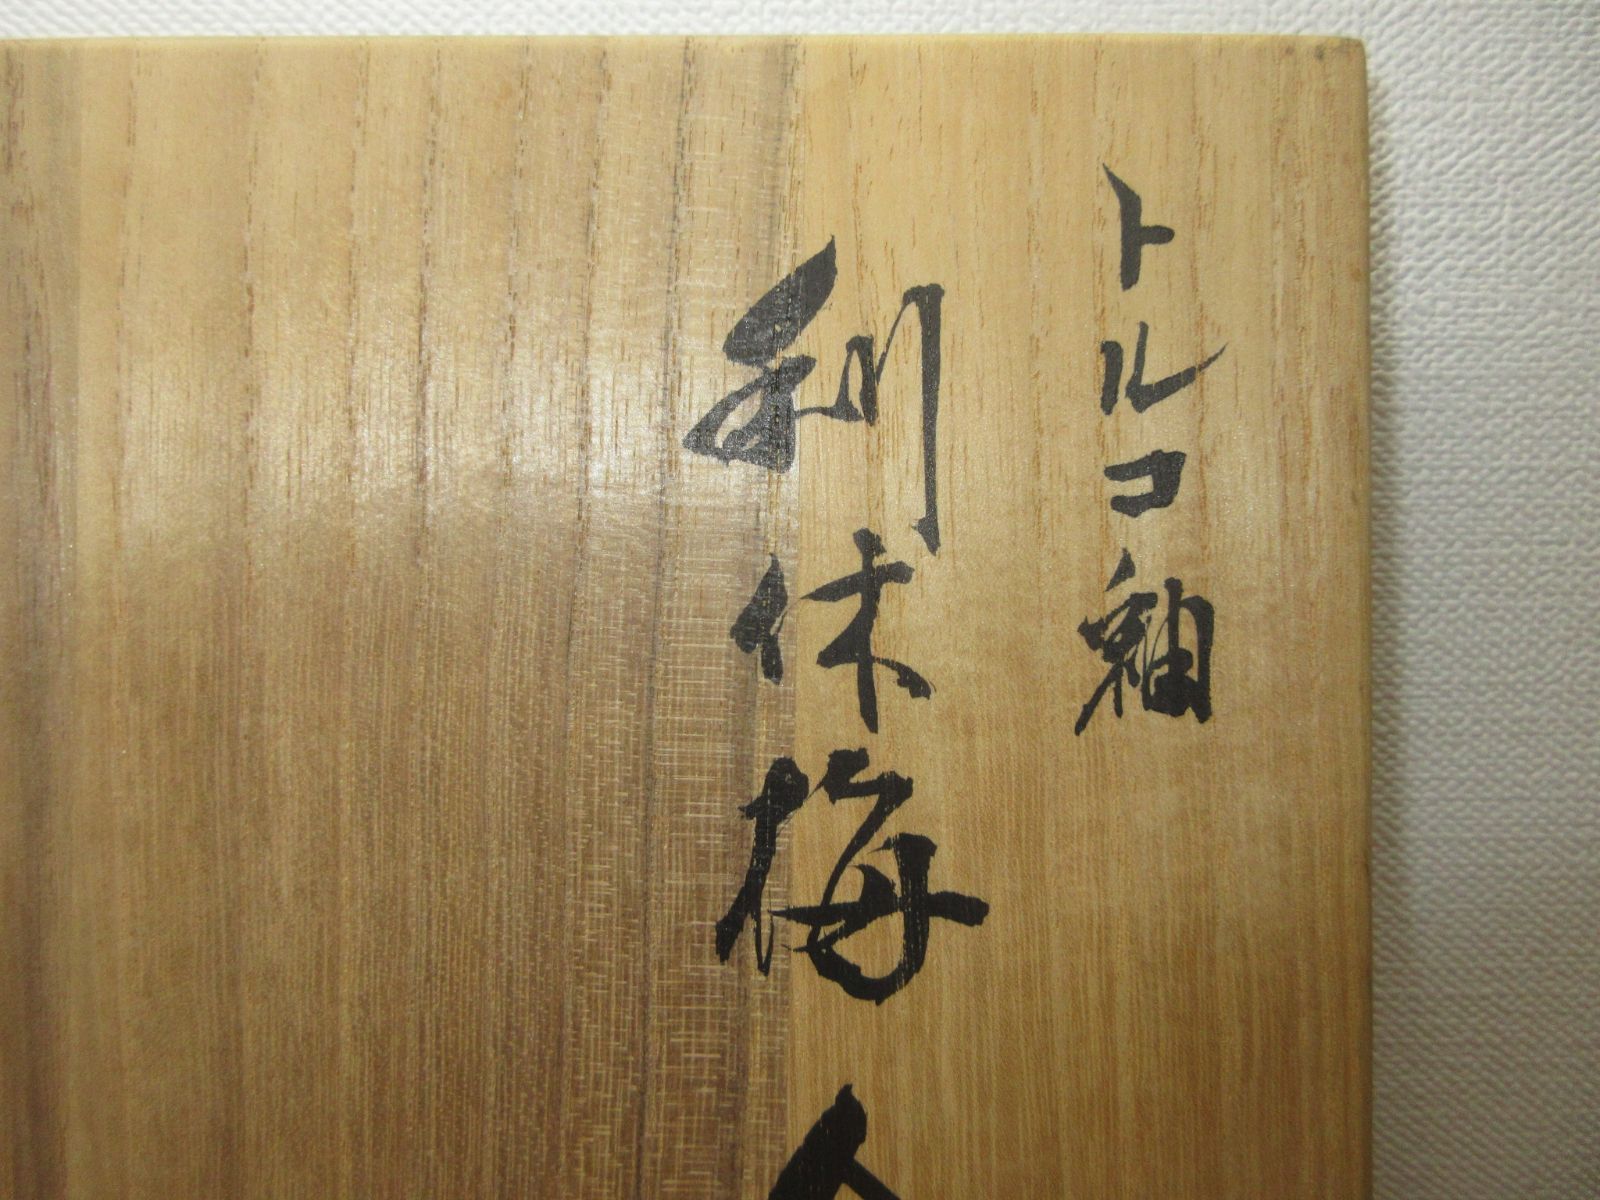 トルコ釉
利休梅